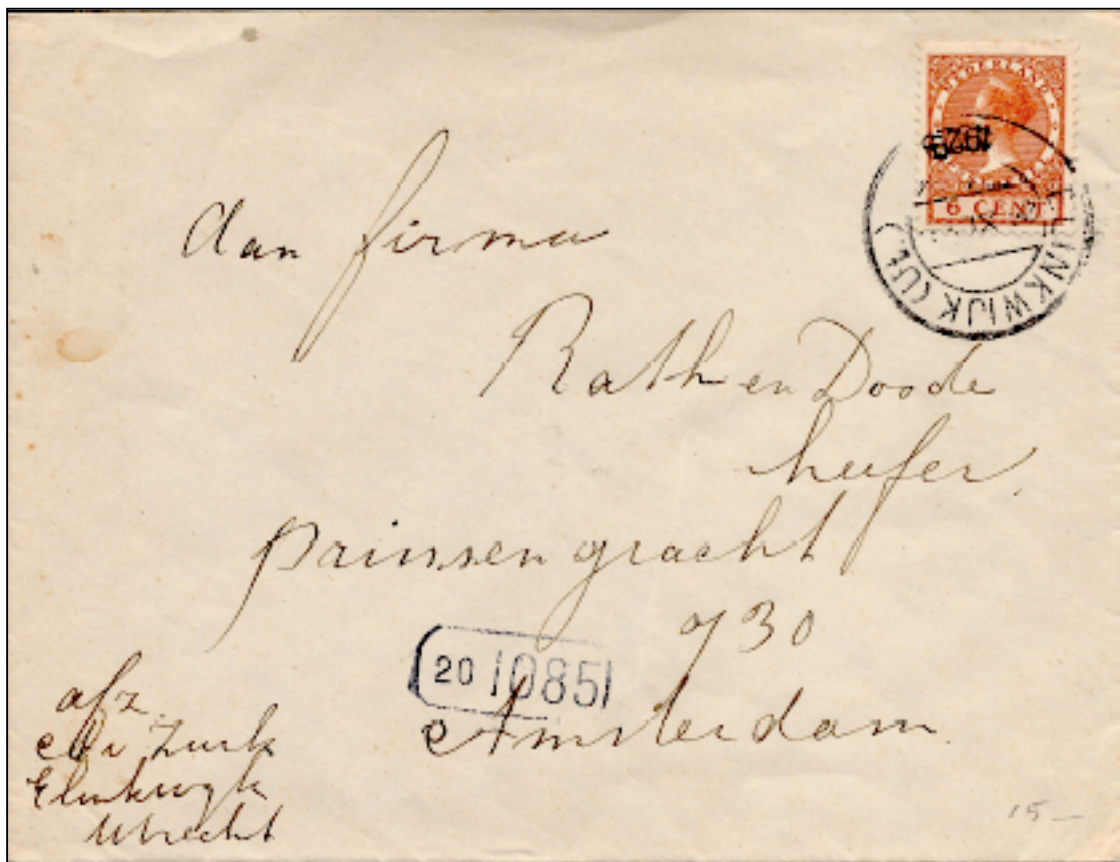 NEDERLAND
1929
6 CENT
ELINKWIJK (U)
Aan firma
Rath en Doode
heefer.
Prinsengracht
730
20 10851
Amsterdam.
afz.
Elinkwyk
Utrecht
15 –